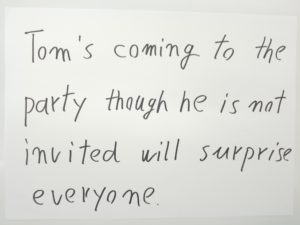 Tom's coming to the
party though he is not
invited will surprise
everyone.